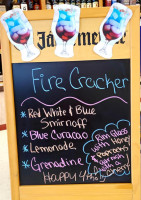 Jägermeister
Fire Cracker
* Red White & Blue
Smirnoff
* Blue Curacao
* Lemonade
* Grenadine
Rim Glass
with Honey
& poprocks
garnish
with a
cherry
HAPPY 4th!